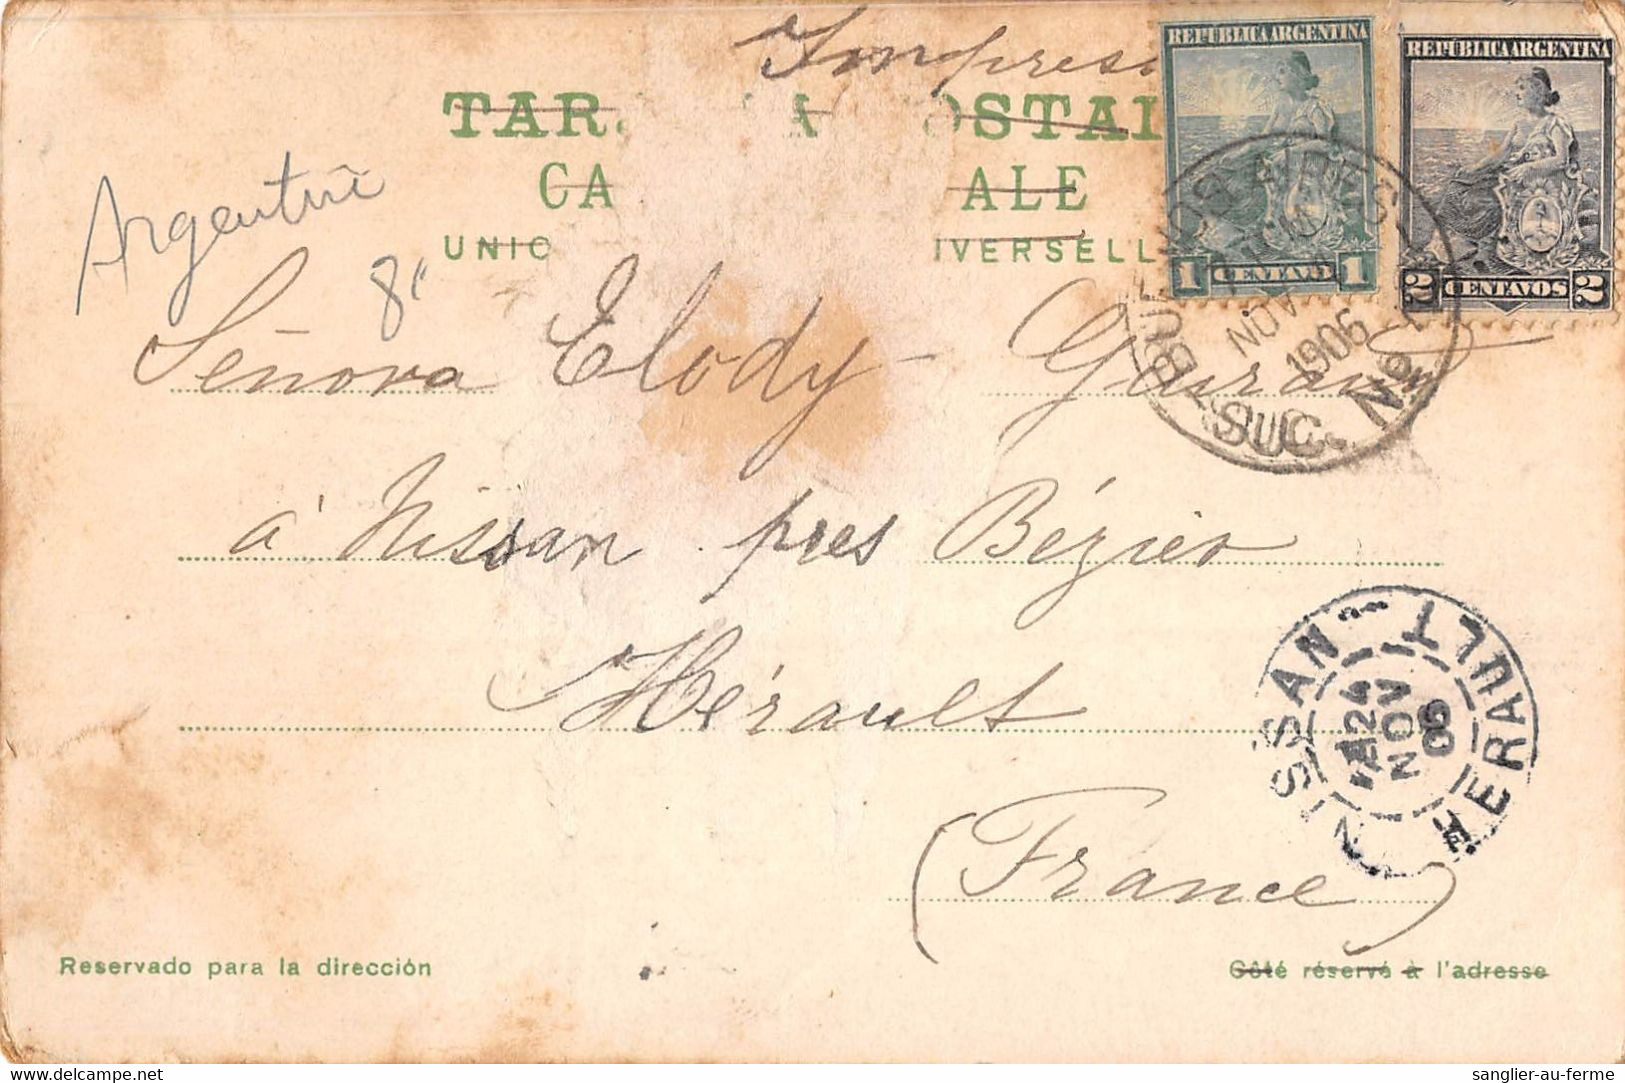 Impreso
TARJETA POSTAL
CA ALE
UNIO IVERSELL
REPÚBLICA ARGENTINA
1 CENTAVO 1
REPÚBLICA ARGENTINA
2 CENTAVOS 2
BUENOS AIRES
NOV
1906
SUC. Nº
Argentine
8"
Señora Elody
à Nissan pres Bézier
Hérault
(France)
NISSAN HERAULT
24
NOV
06
Reservado para la dirección
Côté réservé à l'adresse
delcampe.net
sanglier-au-ferme